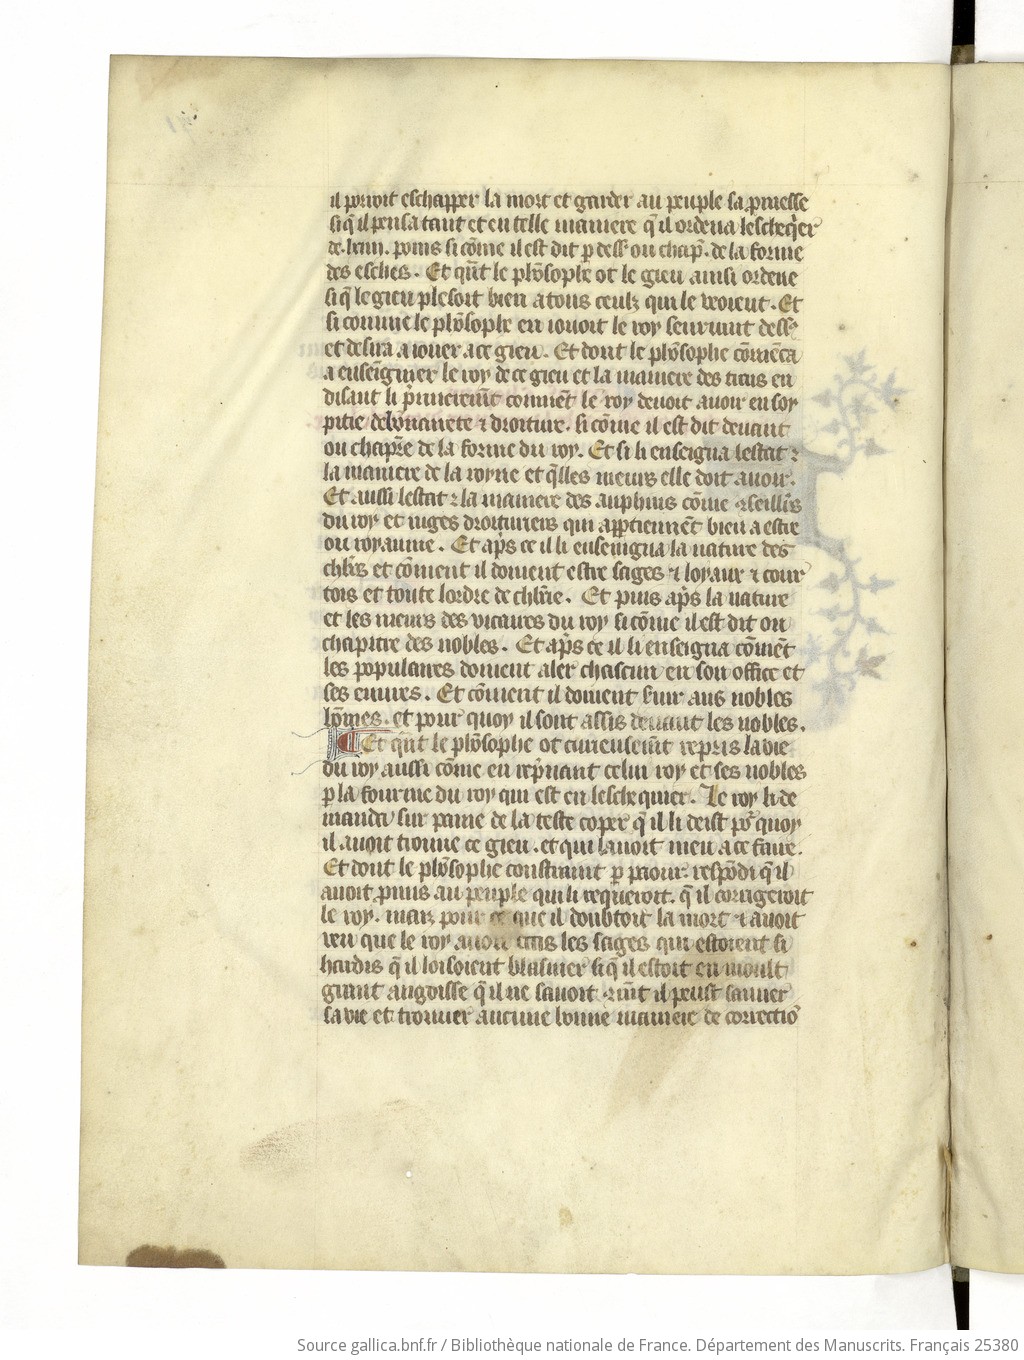 il pouoit eschapper la mort et garder au peuple sa ꝓmesse
si q̃ il pensa tant et en telle maniere q̃ il ordena lescheq̇er
de .lxiiii. poins si cõme il est dit ꝑ dess⁹ ou chap̃. de la forme
des esches. Et qñt le phõsophe ot le gieu ainsi ordene
si q̃ le gieu plesoit bien a tous ceulz qui le veoient. Et
si comme le phõsophe en iouoit le roy seuruint dess⁹
et desira a iouer a ce gieu. Et dont le phõsophe cõmẽca
a enseignier le roy de ce gieu et la maniere des trais en
disant li p̃mieremẽt commẽt le roy deuoit auoir en soy
pitie debonnairete ⁊ droiture. si cõme il est dit deuant
ou chapr̃e de la forme du roy. Et si li enseigna lestat ⁊
la maniere de la royne et q̃lles meurs elle doit auoir.
Et aussi lestat ⁊ la maniere des auphins cõme ꝯseillers
du roy et iuges droituriers qui apꝑtiennẽt bien a estre
ou royaume. Et ap̃s ce il li enseingna la nature des
chlr̃s et cõment il doiuent estre sages ⁊ loyaux ⁊ cour
tois et toute lordre de chlr̃ie. Et puis ap̃s la nature
et les meurs des vicaires du roy si cõme il est dit ou
chapitre des nobles. Et ap̃s ce il li enseigna cõmẽt
les populaires doiuent aler chascun en son office et
ses euures. Et cõment il doiuent seruir aus nobles
hõmes. et pour quoy il sont assis deuant les nobles.
Et qñt le phõsophe ot curieusemẽt repris la vie
du roy aussi cõme en rep̃nant celui roy et ses nobles
ꝑ la fourme du roy qui est en leschequier. Le roy li de
manda sur paine de la teste coper q̃ il li deist po͛quoy
il auoit trouue ce gieu. et qui lauoit meu a ce faire.
Et dont le phõsophe constraint ꝑ paour. respõdi q̃ il
auoit ꝓmis au peuple qui li requeroit. q̃ il corrigeroit
le roy. maiz pour ce que il doubtoit la mort ⁊ auoit
veu que le roy auoit occis les sages qui estoient si
hardis q̃ il losoient blasmer si q̃ il estoit en moult
grant angoisse q̃ il ne sauoit ꝯmẽt il peust sauuer
sa vie et trouuer aucune bonne maniere de correctiõ
Source gallica.bnf.fr / Bibliothèque nationale de France. Département des Manuscrits. Français 25380